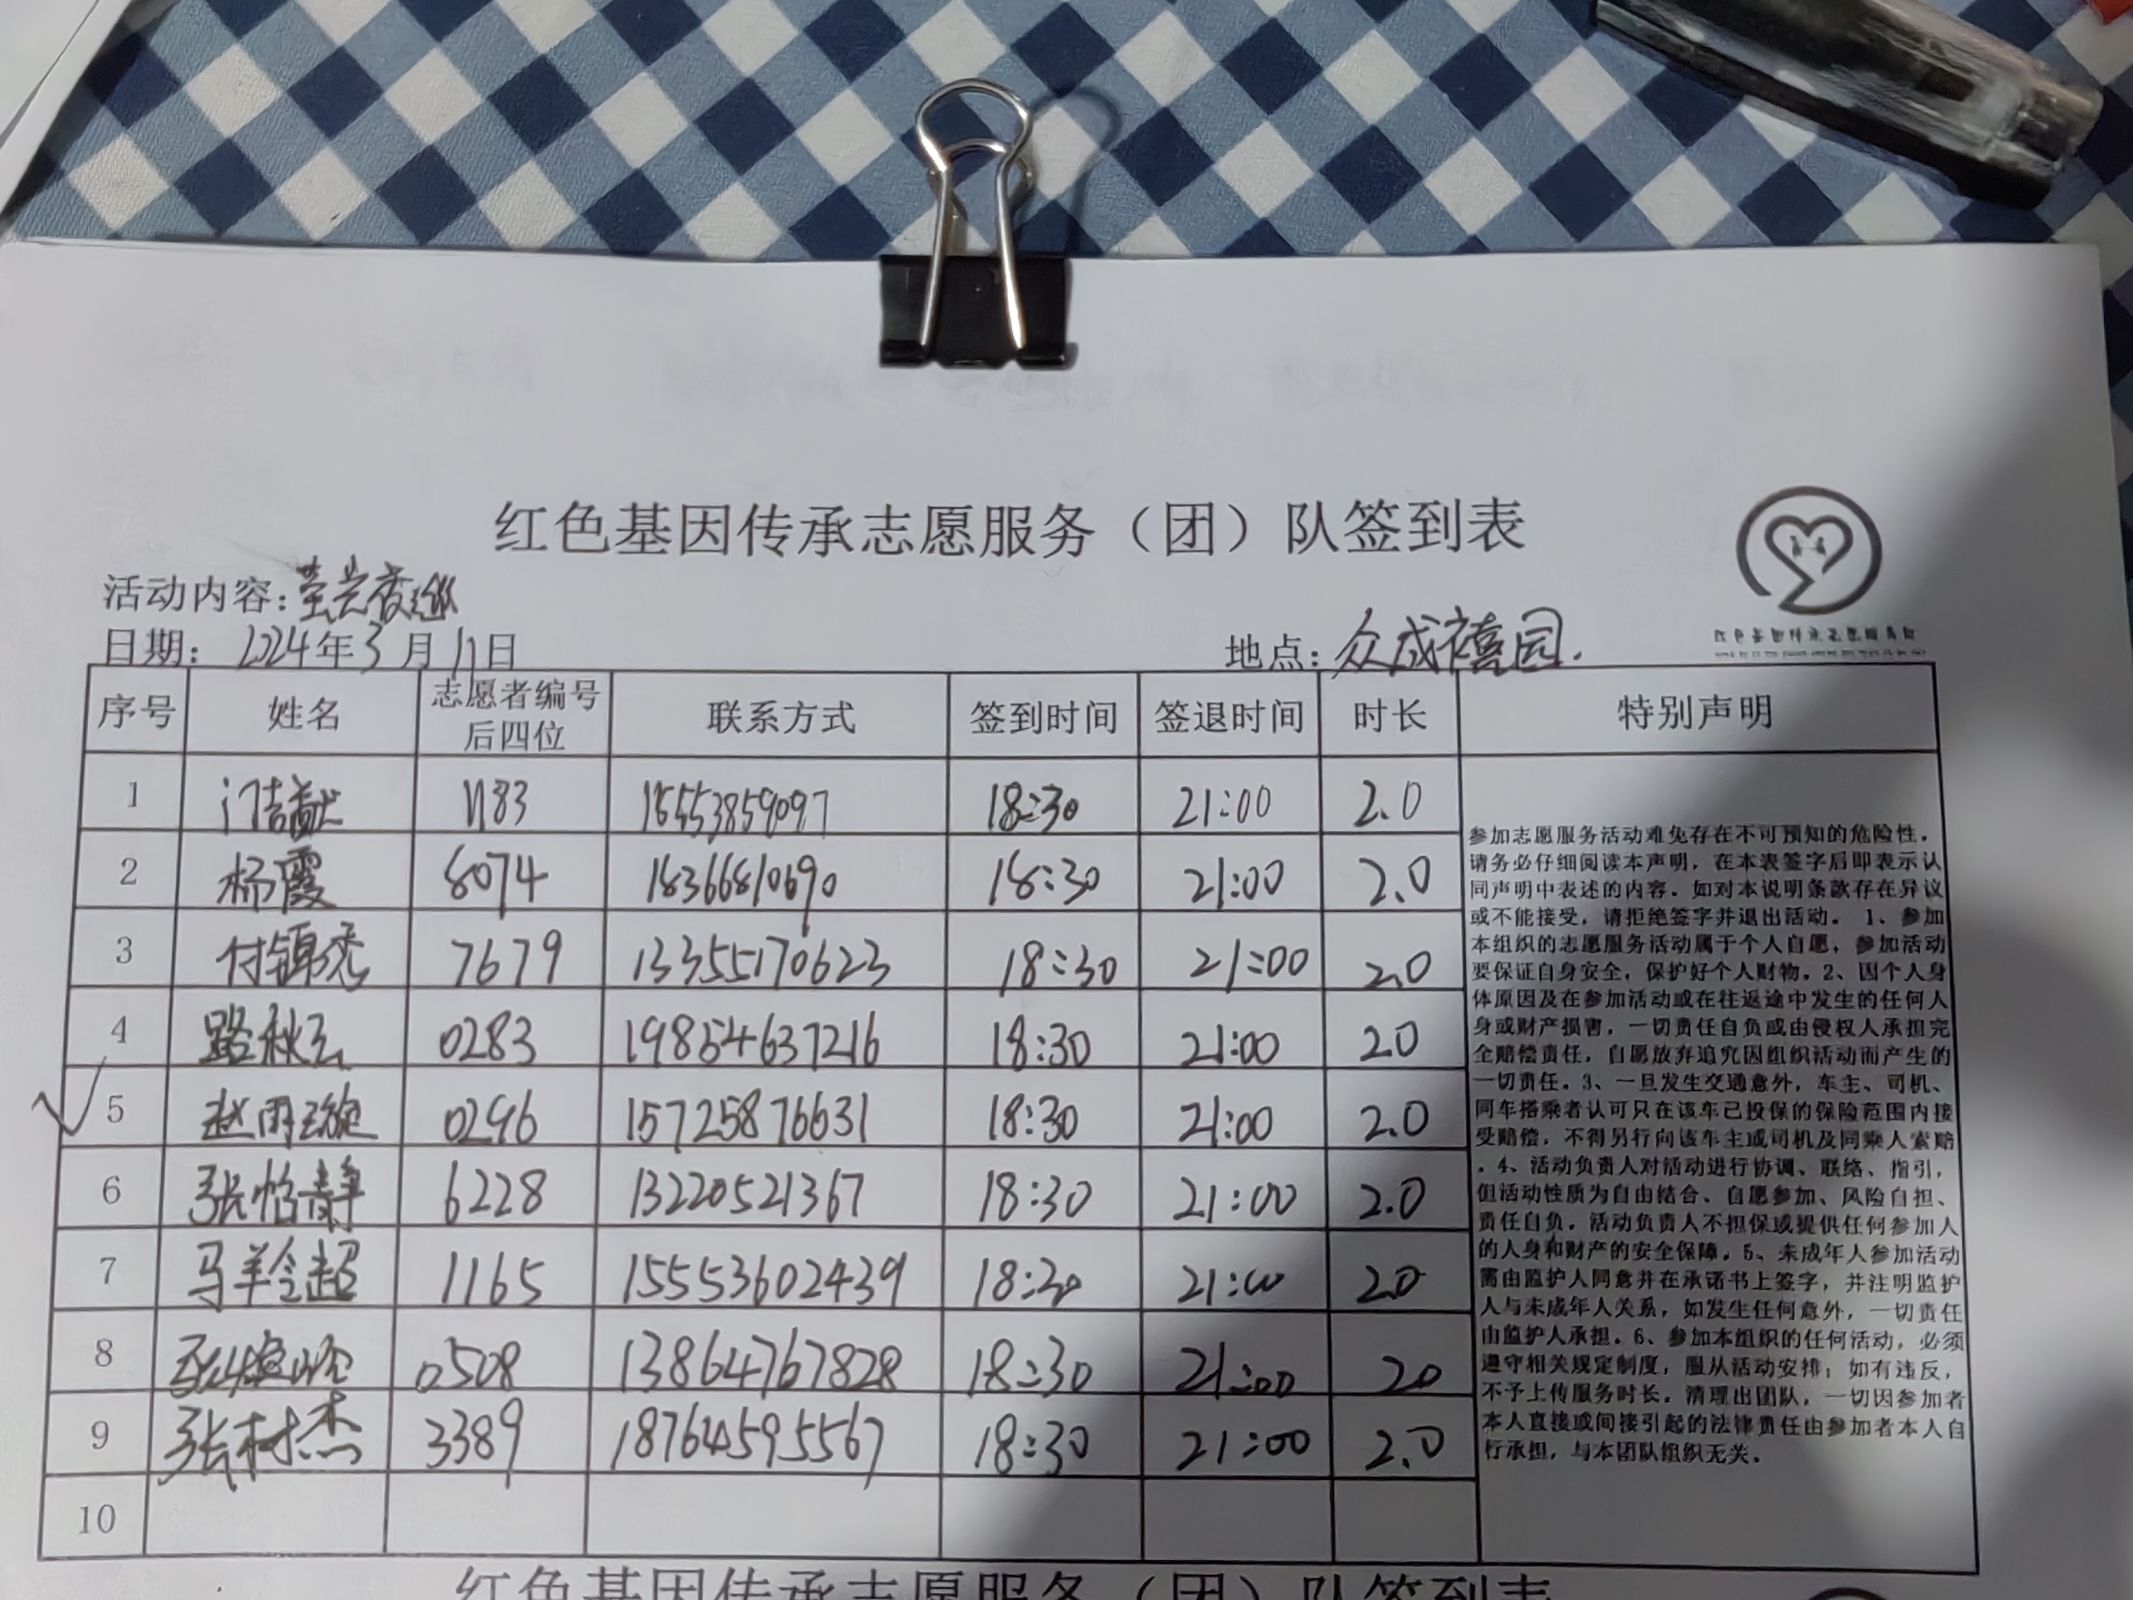 红色基因传承志愿服务（团）队签到表
活动内容：萤光夜巡
日期： 2024年3月17日 地点：众成禧园.
序号 姓名 志愿者编号后四位 联系方式 签到时间 签退时间 时长 特别声明
1 门吉 1183 15553859097 18:30 21:00 2.0
2 杨霞 8074 18366810690 18:30 21:00 2.0
3 付锦秀 7679 13355170623 18:30 21:00 2.0
4 路秋云 0283 19854637216 18:30 21:00 2.0
5 赵雨璇 0296 15725876631 18:30 21:00 2.0
6 张怡静 6228 13220521367 18:30 21:00 2.0
7 马羊令超 1165 15553602439 18:30 21:00 2.0
8 0508 13864767828 18:30 21:00 2.0
9 张树杰 3389 18764595567 18:30 21:00 2.0
10
参加志愿服务活动难免存在不可预知的危险性。
请务必仔细阅读本声明，在本表签字后即表示认
同声明中表述的内容。如对本说明条款存在异议
或不能接受，请拒绝签字并退出活动。 1、参加
本组织的志愿服务活动属于个人自愿，参加活动
要保证自身安全，保护好个人财物。2、因个人身
体原因及在参加活动或在往返途中发生的任何人
身或财产损害，一切责任自负或由侵权人承担完
全赔偿责任，自愿放弃追究因组织活动而产生的
一切责任。3、一旦发生交通意外，车主、司机、
同车搭乘者认可只在该车已投保的保险范围内接
受赔偿，不得另行向该车主或司机及同乘人索赔
。4、活动负责人对活动进行协调、联络、指引，
但活动性质为自由结合、自愿参加、风险自担、
责任自负。活动负责人不担保或提供任何参加人
的人身和财产的安全保障。5、未成年人参加活动
需由监护人同意并在承诺书上签字，并注明监护
人与未成年人关系，如发生任何意外，一切责任
由监护人承担。6、参加本组织的任何活动，必须
遵守相关规定制度，服从活动安排；如有违反，
不予上传服务时长。清理出团队，一切因参加者
本人直接或间接引起的法律责任由参加者本人自
行承担，与本团队组织无关。
红色基因传承志愿服务（团）队签到表